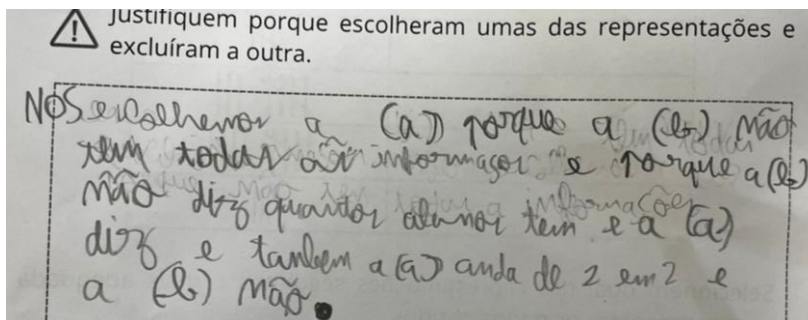 Justifiquem porque escolheram umas das representações e
excluíram a outra.
NÓS escolhemos a (a) porque a (b) não
tem todas as informaçoes e porque a (b)
não diz quantos alunos tem e a (a)
diz e tanbem a (a) anda de 2 em 2 e
a (b) não.